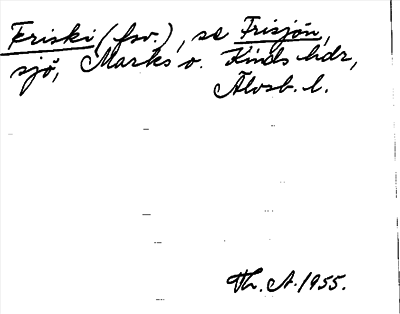 Friski (fsv.), se Frisjön,
sjö, Marks o. Kinds hdr,
Älvsb. l.
Th. A. 1955.